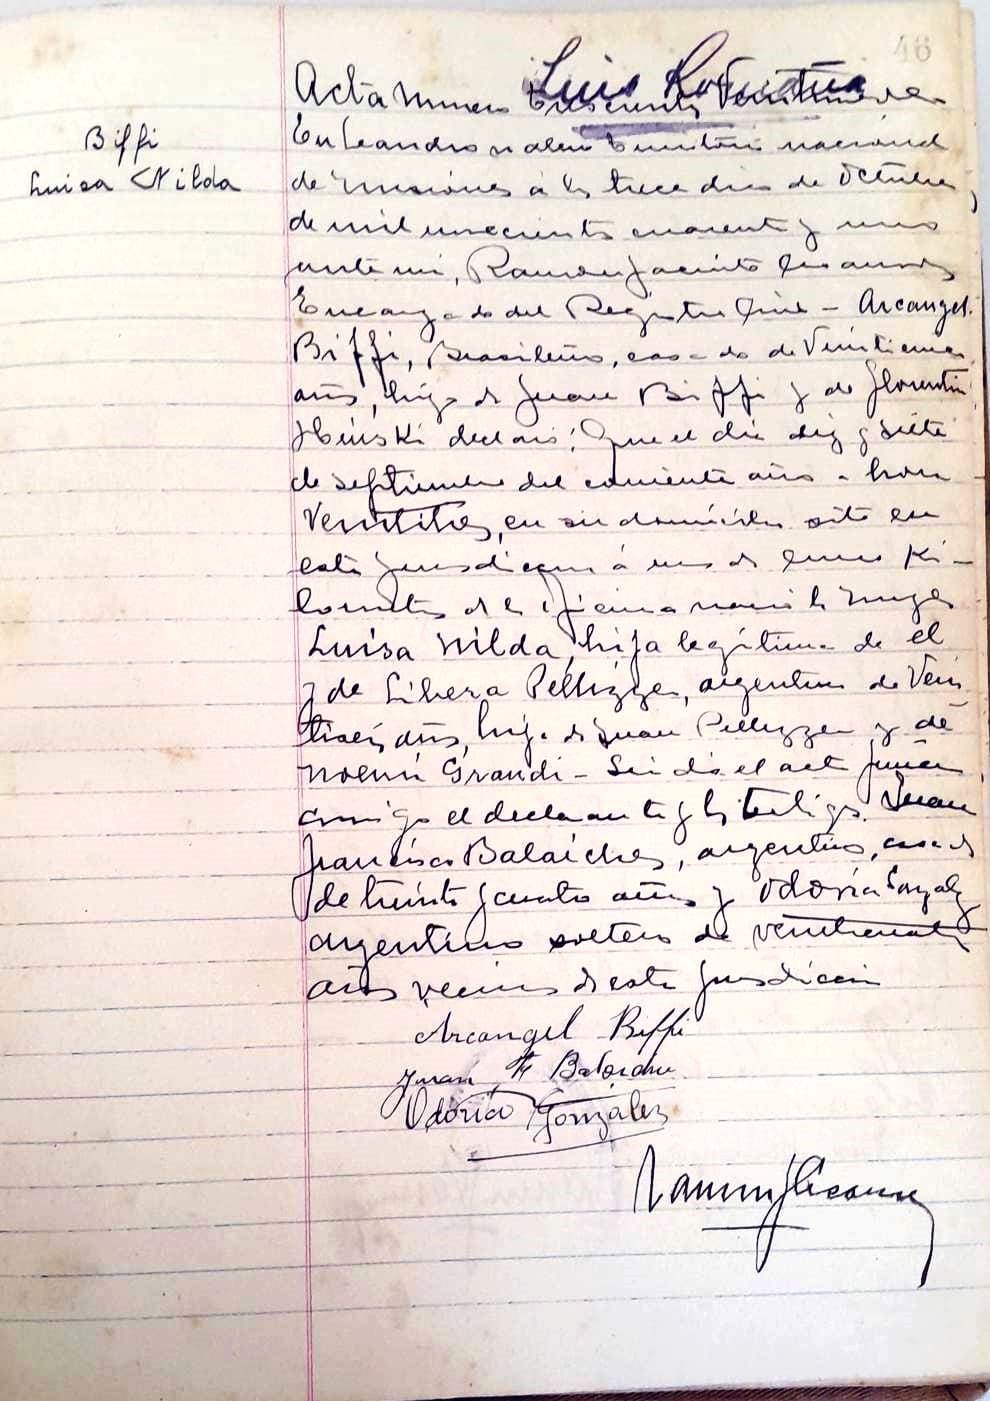 46
Luis
Acta numero trescientos veintinueve
Biffi
Luisa Nilda
En Leandro N alem territorio nacional
de misiones á los trece dias de octubre
de mil novecientos cuarenta y uno
ante mi, Ramon Jacinto
Encargado del Registro Civil - Arcangel
Biffi, Brasileño, casado de
años, hijo de Juan Biffi y de Florentin
declaró: Que el dia diez y siete
de septiembre del corriente año a horas
veintitres, en su domicilio sito en
esta jurisdiccion á unos cinco Ki-
lometros de la oficina nacio la mujer
Luisa Nilda, hija legítima de el
y de Libera Pellizzer, argentina de Vein
tiseis años, hija de Juan Pellizzer y de
noemi Grandi - Leida el acta
conmigo el declarante y los testigos Juan
Francisco, argentino, casado
de treinta y cuatro años y Odoria Gonzalez
argentino soltero de veinticuatro
años vecinos de esta jurisdiccion
Arcangel Biffi
Juan F
Odoria Gonzalez
Ramon J